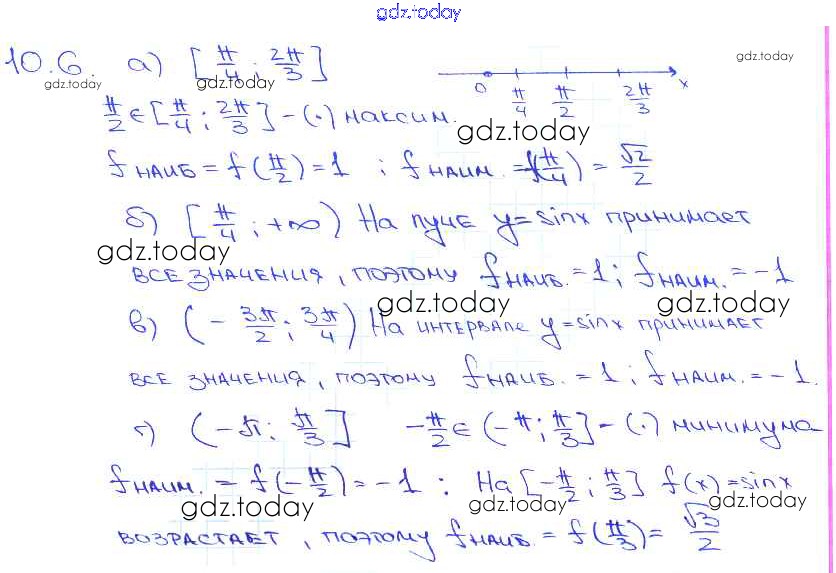 gdz.today
10.6. а) [π/4 ; 2π/3]
gdz.today
gdz.today
gdz.today
0 π/4 π/2 2π/3 x
π/2 ∈ [π/4 ; 2π/3] – (·) максим.
gdz.today
fнаиб = f(π/2) = 1 ; fнаим. = f(π/4) = √2/2
б) [π/4 ; +∞) На луче y = sinx принимает
gdz.today
gdz.today
все значения, поэтому fнаиб. = 1 ; fнаим. = -1
gdz.today
gdz.today
в) (-3π/2 ; 3π/4) На интервале y = sinx принимает
все значения, поэтому fнаиб. = 1 ; fнаим. = -1.
г) (-π ; π/3] -π/2 ∈ (-π ; π/3] – (·) минимума
gdz.today
fнаим. = f(-π/2) = -1 ; На [-π/2 ; π/3] f(x) = sinx
gdz.today
gdz.today
gdz.today
возрастает, поэтому fнаиб = f(π/3) = √3/2